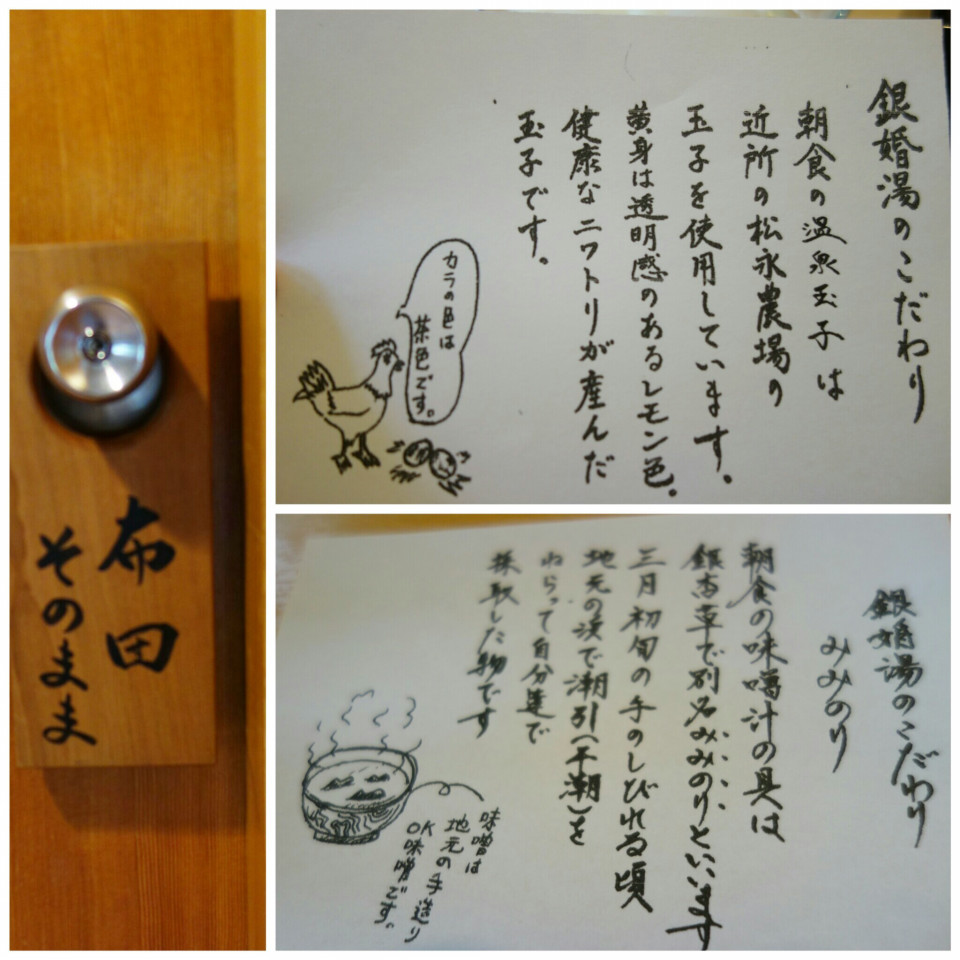 布田
そのまま
銀婚湯のこだわり
朝食の温泉玉子は
近所の松永農場の
玉子を使用しています。
黄身は透明感のあるレモン色。
健康なニワトリが産んだ
玉子です。
カラの色は
茶色です。
銀婚湯のこだわり
みみのり
朝食の味噌汁の具は
銀杏草で別名みみのりといいます
三月初旬の手のしびれる頃
地元の浜で潮引(干潮)を
ねらって自分達で
採取した物です
味噌は
地元の手造り
OK味噌です。